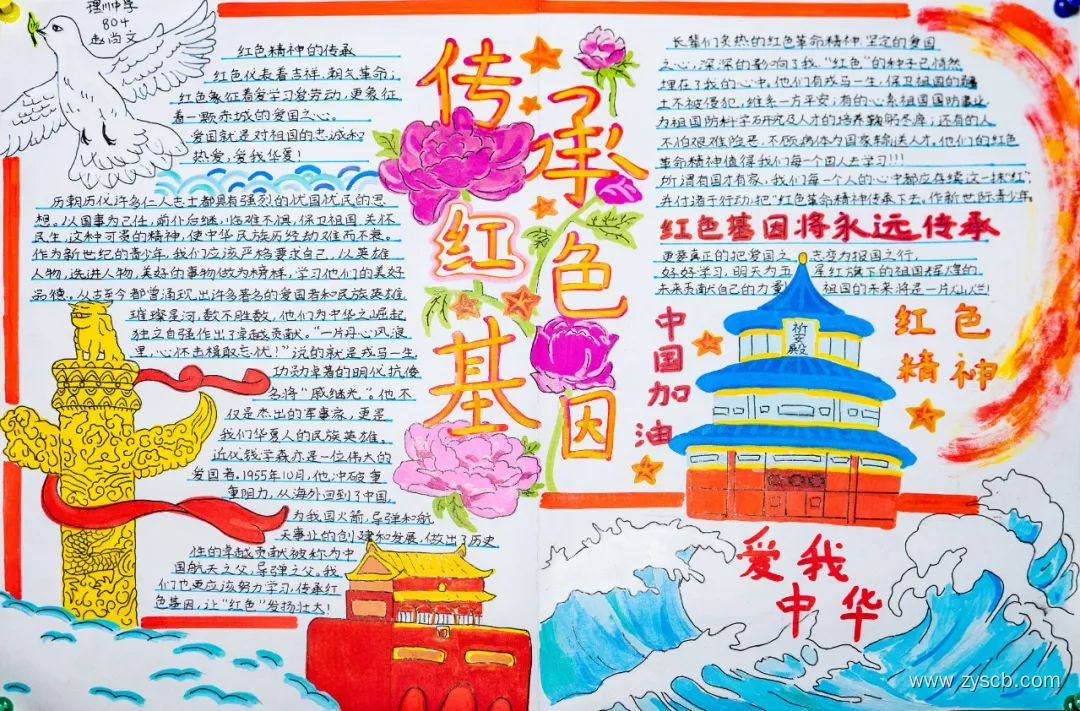 理川中学
804
赵尚文
红色精神的传承
红色仪表着吉祥,朝气革命;
红色象征着爱学习爱劳动,更象征
着一颗赤城的爱国之心。
爱国就是对祖国的忠诚和
热爱,爱我华夏!
历朝历代许多仁人志士都具有强烈的忧国忧民的思
想。以国事为己任,前仆后继,临难不惧,保卫祖国,关怀
民生,这种可贵的精神,使中华民族历经劫难而不衰。
作为新世纪的青少年,我们应该严格要求自己,从英雄
人物,先进人物,美好的事物做为榜样,学习他们的美好
品德。从古至今都曾涌现出许多著名的爱国者和民族英雄,
璀璨星河,数不胜数,他们为中华之崛起
独立自强作出了卓越贡献。“一片丹心风浪
里,心怀击楫敢忘忧!”说的就是戎马一生,
功勋卓著的明代抗倭
名将“戚继光”。他不
仅是杰出的军事家,更是
我们华夏人的民族英雄。
近代钱学森亦是一位伟大的
爱国者,1955年10月,他冲破重
重阻力,从海外回到了中国,
为我国火箭,导弹和航
天事业的创建和发展,做出了历史
性的卓越贡献被称为中
国航天之父,导弹之父。我
们也更应该努力学习,传承红
色基因,让“红色”发扬壮大!
传承红色基因
长辈们炙热的红色革命精神,坚定的爱国
之心,深深的影响了我。“红色”的种子已悄然
埋在了我的心中。他们有戎马一生,保卫祖国的疆
土不被侵犯,维系一方平安;有的心系祖国国防事业,
为祖国防科学研究及人才的培养鞠躬尽瘁;还有的人
不怕艰难险恶,不顾身体为国家输送人才。他们的红色
革命精神值得我们每一个国人去学习!!!
所谓有国才有家,我们每一个人的心中都应存续这一抹“红”,
并付诸于行动,把“红色革命精神传承下去。作新世纪青少年,
红色基因将永远传承
更要真正的把爱国之 志变为报国之行,
好好学习,明天为五 星红旗下的祖国辉煌的
未来贡献自己的力量! 祖国的未来将是一片灿烂!
祈
安
殿
中国加油
红色
精神
爱我
中华
www.zyscb.com